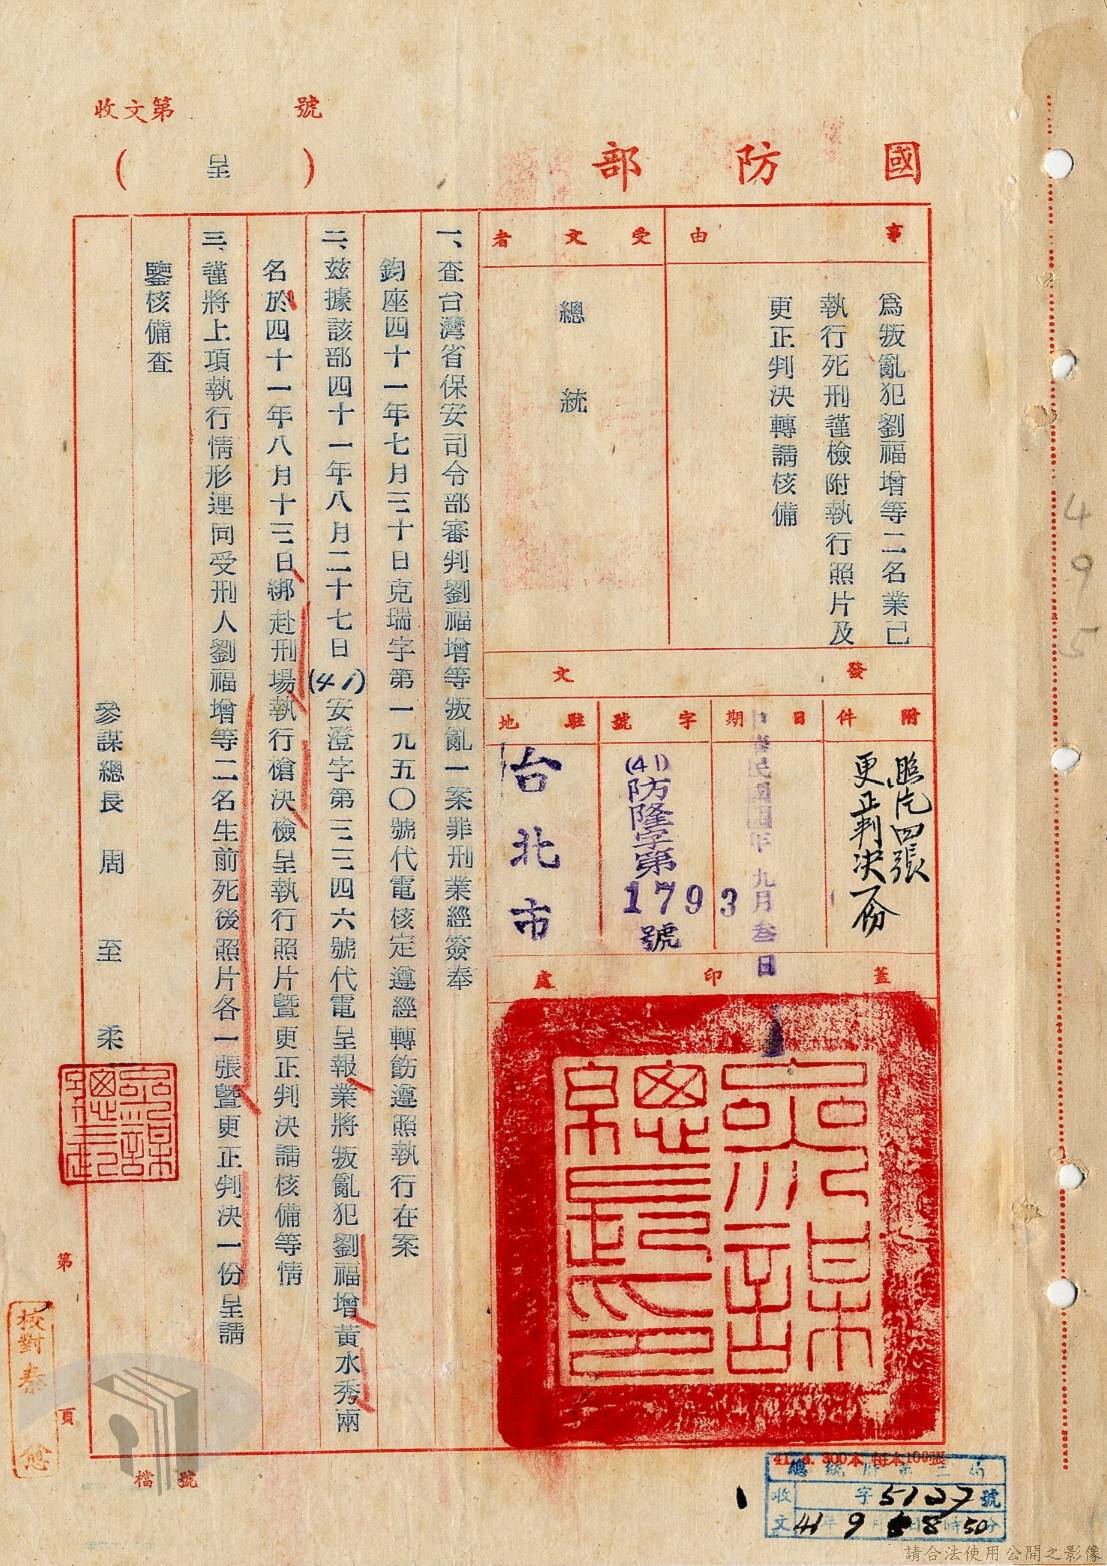 收文第　　　號
國防部
（呈）
事由
為叛亂犯劉福增等二名業已
執行死刑謹檢附執行照片及
更正判決轉請核備
受文者
總統
發文
附件
照片四張
更正判決一份
日期
中華民國四一年九月叁日
字號
(41)防隆字第1793號
駐地
台北市
蓋印處
參謀總長印
一、查台灣省保安司令部審判劉福增等叛亂一案罪刑業經簽奉
鈞座四十一年七月三十日克瑞字第一九五〇號代電核定遵經轉飭遵照執行在案
二、茲據該部四十一年八月二十七日(41)安澄字第三二四六號代電呈報業將叛亂犯劉福增黃水秀兩
名於四十一年八月十三日綁赴刑場執行槍決檢呈執行照片暨更正判決請核備等情
三、謹將上項執行情形連同受刑人劉福增等二名生前死後照片各一張暨更正判決一份呈請
鑒核備查
參謀總長 周至柔
第　　　頁
校對
檔號
495
300本 每本100張
總統府第二局
收文 字5127號
41年9月8日8時50分
請合法使用公開之影像